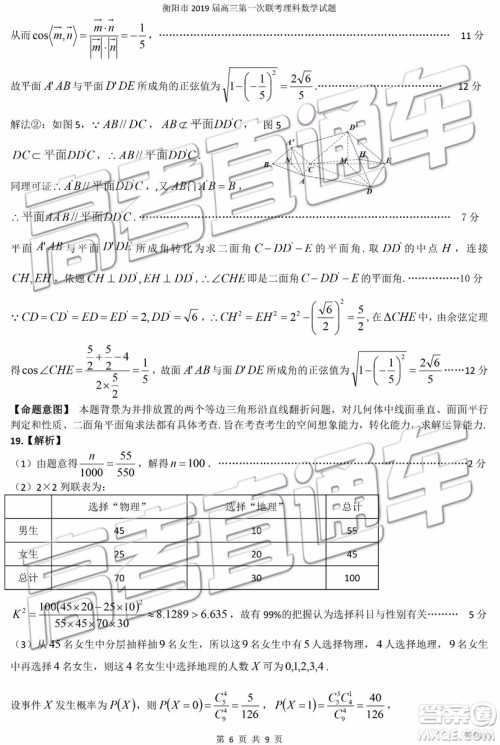 衡阳市 2019 届高三第一次联考理科数学试题
从而 cos⟨m,n⟩ = m·n / |m|·|n| = -1/5，……………………………… 11 分
故平面 A'AB 与平面 D'DE 所成角的正弦值为 √(1-(-1/5)²) = 2√6/5.……………………………… 12 分
解法②：如图 5，∵ AB // DC， AB ⊄ 平面DD'C， 图 5
DC ⊂ 平面DD'C，∴ AB // 平面DD'C .
同理可证 A'B // 平面DD'C，又 AB ∩ A'B = B，
∴ 平面AA'B // 平面DD'C .……………………………… 7 分
平面 A'AB 与平面 D'DE 所成角转化为求二面角 C-DD'-E 的平面角. 取 DD' 的中点 H，连接
CH, EH，依题 CH ⊥ DD', EH ⊥ DD'，∴ ∠CHE 即是二面角的平面角.……………10 分
∵ CD = CD' = ED = ED' = 2, DD' = √6，∴ CH² = EH² = 2² - (√6/2)² = 5/2, 在 ΔCHE 中，由余弦定理
得 cos∠CHE = (5/2 + 5/2 - 4) / (2×5/2) = 1/5，故面 A'AB 与面 D'DE 所成角的正弦值为 √(1-(-1/5)²) = 2√6/5 ……12 分
【命题意图】 本题背景为并排放置的两个等边三角形沿直线翻折问题，对几何体中线面垂直、面面平行
判定和性质、二面角平面角求法都有具体考查. 旨在考查考生的空间想象能力，转化能力，求解运算能力.
19.【解析】
（1）由题意得 n/1000 = 55/550，解得 n = 100 .………………………………2 分
（2）2×2 列联表为：
选择“物理” 选择“地理” 总计
男生 45 10 55
女生 25 20 45
总计 70 30 100
K² = 100(45×20-25×10)² / (55×45×70×30) ≈ 8.1289 > 6.635，故有 99%的把握认为选择科目与性别有关…… 5 分
（3）从 45 名女生中分层抽样抽 9 名女生，所以这 9 名女生中有 5 人选择物理，4 人选择地理，9 名女生
中再选择 4 名女生，则这 4 名女生中选择地理的人数 X 可为 0,1,2,3,4 .
设事件 X 发生概率为 P(X)，则 P(X=0) = C₅⁴/C₉⁴ = 5/126，P(X=1) = C₅³C₄¹/C₉⁴ = 40/126，
第 6 页 共 9 页
高考直通车